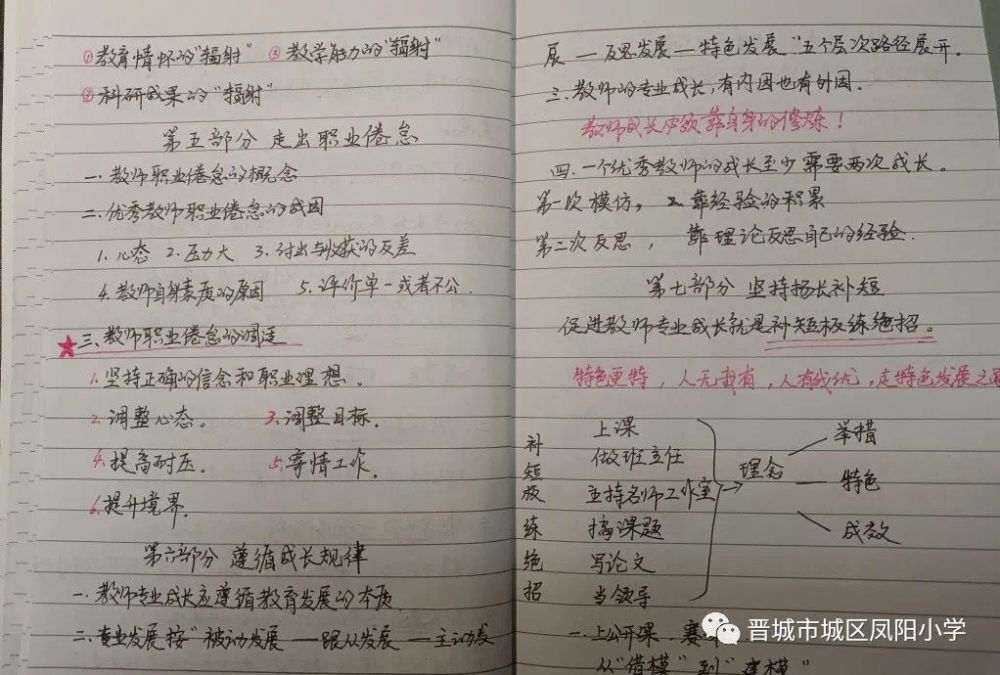 ①教育情怀的“辐射” ②教学能力的“辐射”
③科研成果的“辐射”
第五部分 走出职业倦怠
一.教师职业倦怠的概念
二.优秀教师职业倦怠的成因
1.心态 2.压力大 3.付出与收获的反差
4.教师自身素质的原因 5.评价单一或者不公.
★三.教师职业倦怠的调适
1.坚持正确的信念和职业理想.
2.调整心态。 3.调整目标.
4.提高耐压. 5.寄情工作.
6.提升境界.
第六部分 遵循成长规律
一.教师专业成长应遵循教育发展的本质.
二.专业发展按“被动发展——跟从发展——主动发
展—反思发展—特色发展”五个层次路径展开.
三.教师的专业成长,有内因也有外因.
教师成长必须靠自身的修炼!
四.一个优秀教师的成长至少需要两次成长。
第一次模仿, 靠经验的积累
第二次反思, 靠理论反思自己的经验.
第七部分 坚持扬长补短
促进教师专业成长就是补短板练绝招。
特色更特,人无我有,人有我优,走特色发展之
补短板 练绝招
上课
做班主任
主持名师工作室
搞课题
写论文
当领导
理念
举措
特色
成效
一.上公开课.赛
从“借模”到“建模”
晋城市城区凤阳小学